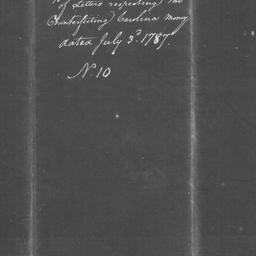 of Letters respecting the
Counterfeiting Carolina Money
dated July 3d. 1787.
No. 10